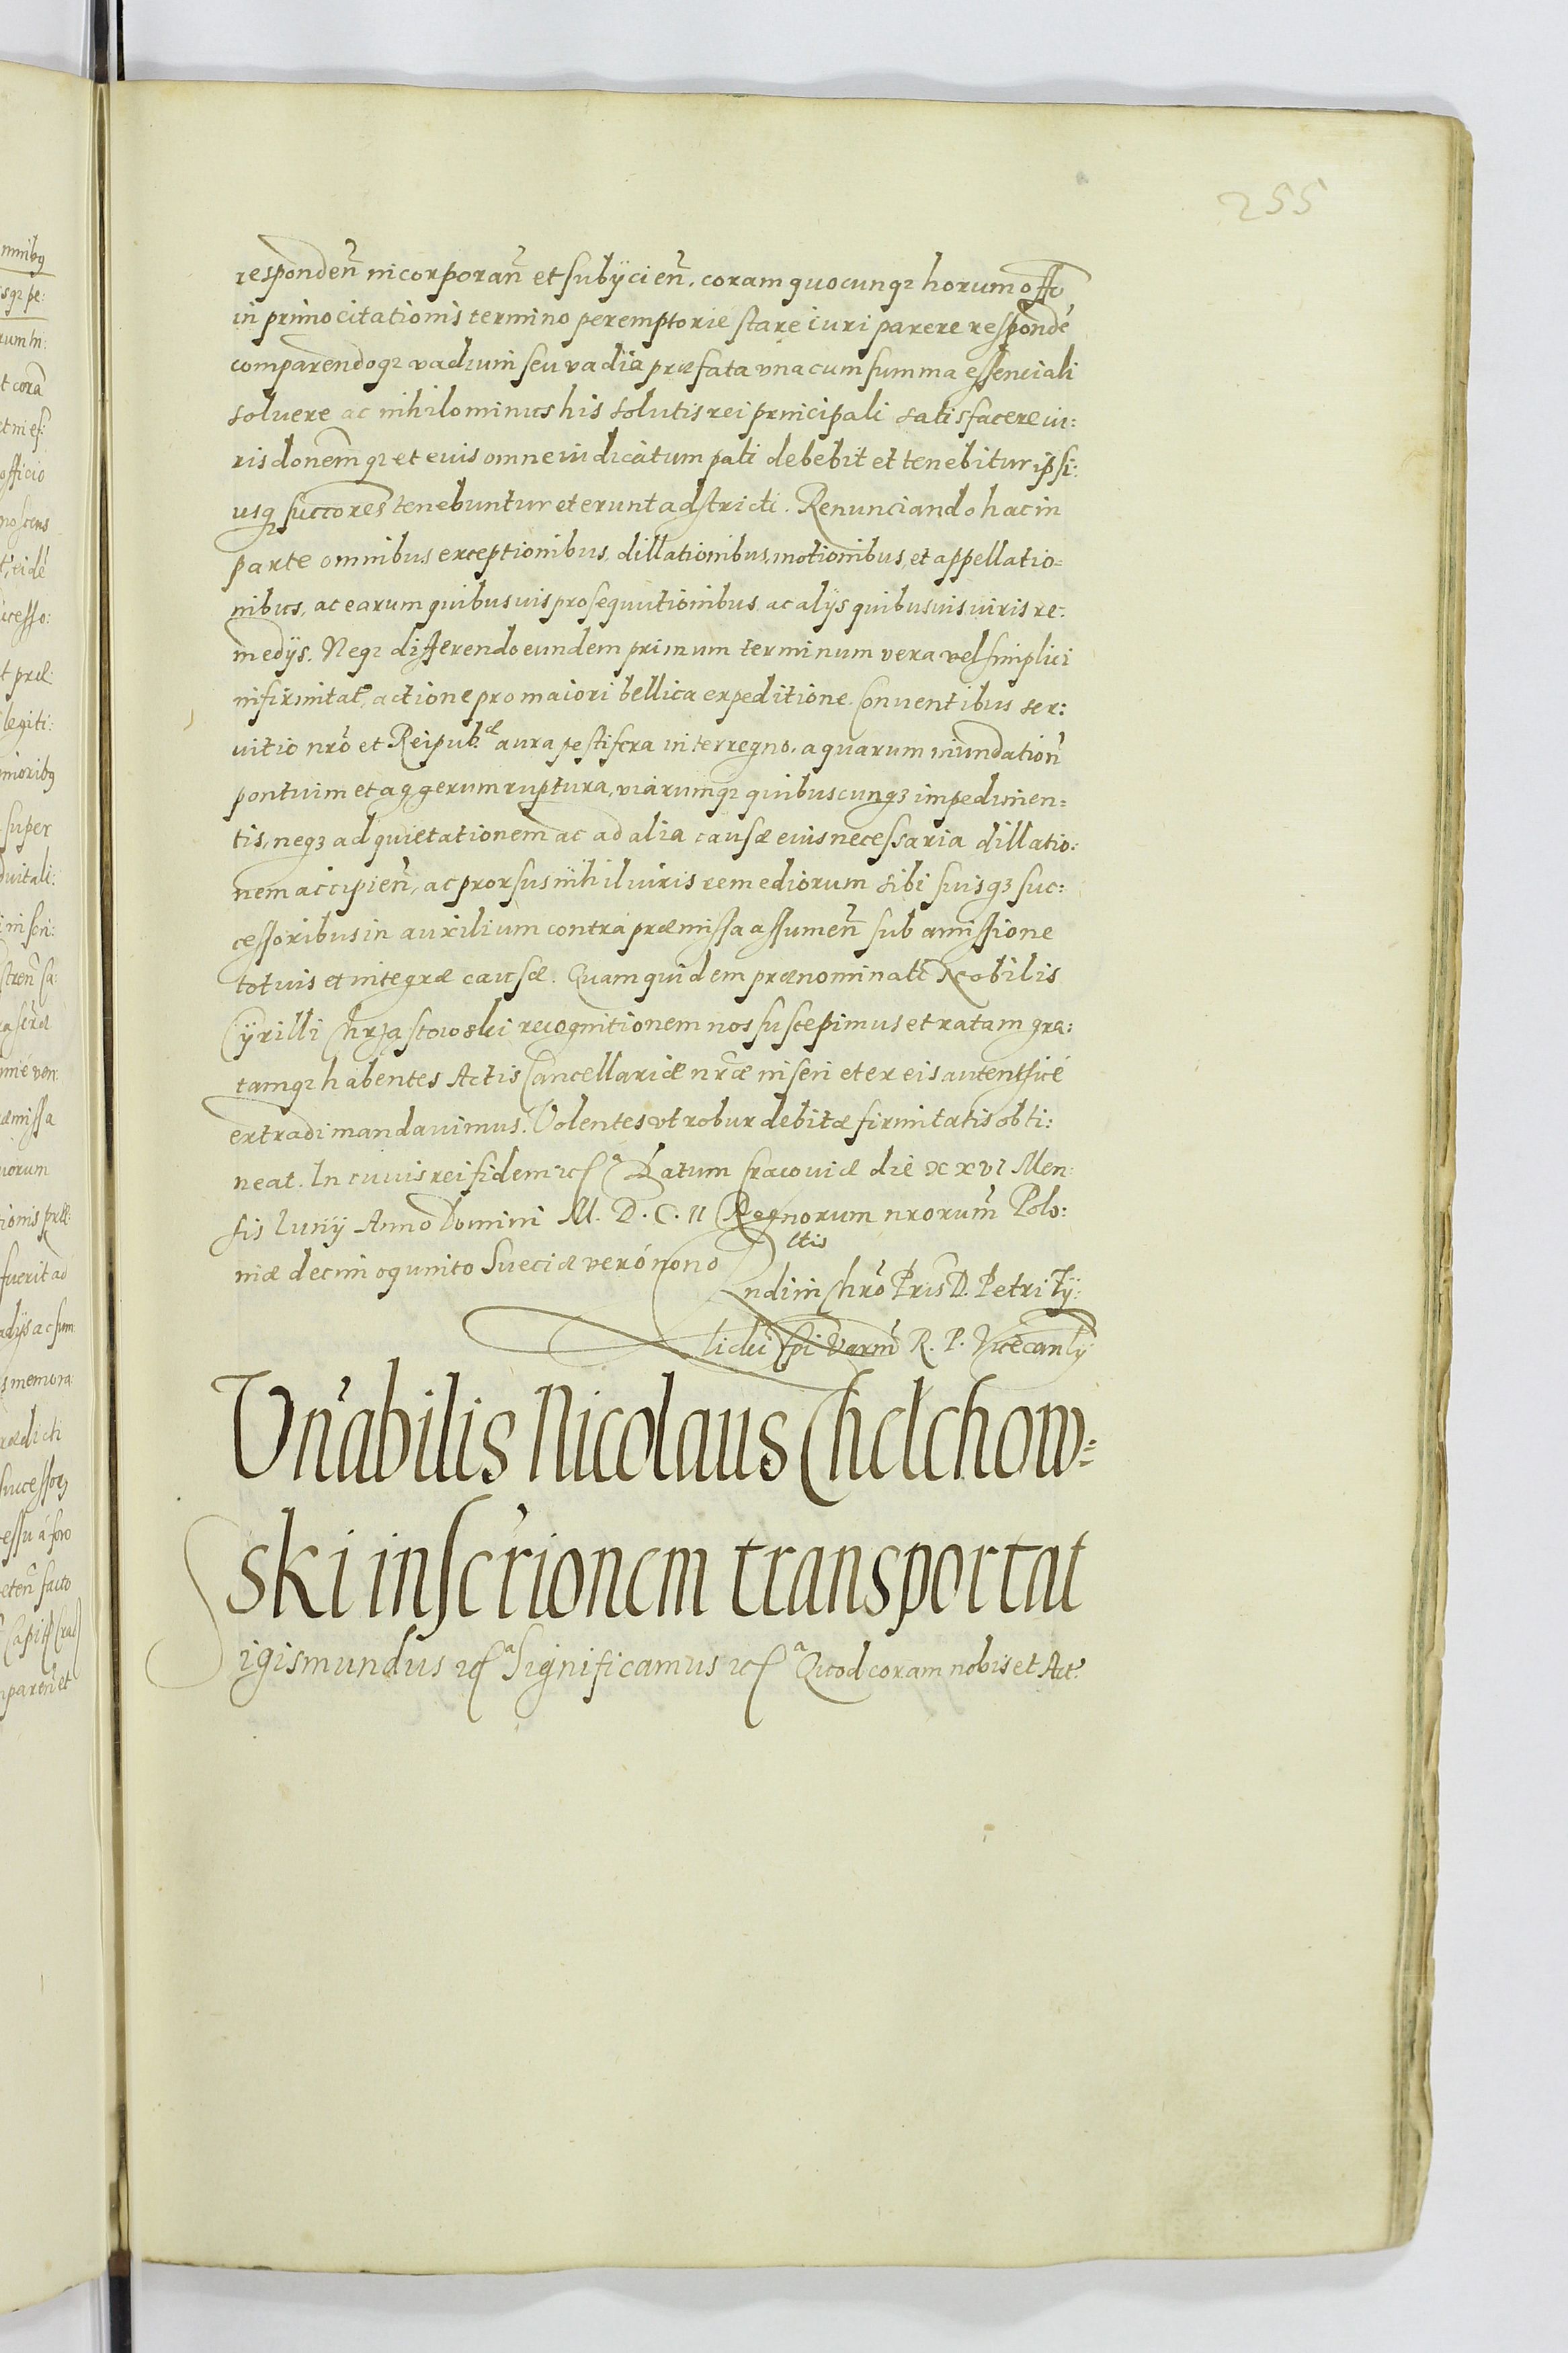 255
respondeñ incorporañ et subijcieñ. coram quocunq₃ horum offo
in primo citationis termino peremptorie stare iuri parere respondé
comparendoq₃ vadium seu vadia præfata vna cum summa essenciali
soluere ac nihilominus his solutis rei principali satisfacere iu:
risdonemq₃ et euis omne iudicatum pati debebit et tenebitur ipsi:
usq₃ succores tenebuntur et erunt adstricti. Renunciando hac in
parte omnibus exceptionibus, dillationibus, motionibus, et appellatio=
nibus, ac earum quibusuis prosequutionibus ac alijs quibusuis iuris re:
medijs. Neq₃ differendo eundem primum terminum vera vel simplici
infirmitate, actione pro maiori bellica expeditione. Conuentibus ser:
uitio nr̃o et Reipub:ᵃᵉ aura pestifera interregno. aquarum inundation̄
pontium et aggerum ruptura, viarumq₃ quibuscunq₃ impedimen=
tis, neq₃ ad quietationem ac ad alia causæ euis necessaria dillatio:
nem accipieñ, ac prorsus nihil iuris remediorum sibi suisq₃ suc:
cessoribus in auxilium contra præmissa assumeñ sub amissione
totuis et integræ causæ. Quam quidem prænominati Nobilis
Cÿrilli Chrząstowski recognitionem nos suscepimus et ratam gra:
tamq₃ habentes Actis Cancellariæ nr̃æ inseri et ex eis autenticé
extradi mandauimus. Volentes vt robur debitæ firmitatis obti:
neat. In cuuis rei fidem etcᵃ Datum Cracouiæ die XXVI Men:
sis Iunij Anno Domini M. D. C. II Regnorum nrorum̃ Polo:
niæ decimoquinto Sueciæ veró nono
Rndi in Chr̃o Pris D. Petri Tÿ:
licki Epi Varm̃ R. P. Vicecanlÿ
Vñabilis Nicolaus Chelchow=
ski inscr̃ionem transportat
Sigismundus etcᵃ Significamus etcᵃ Quod coram nobis et Act: